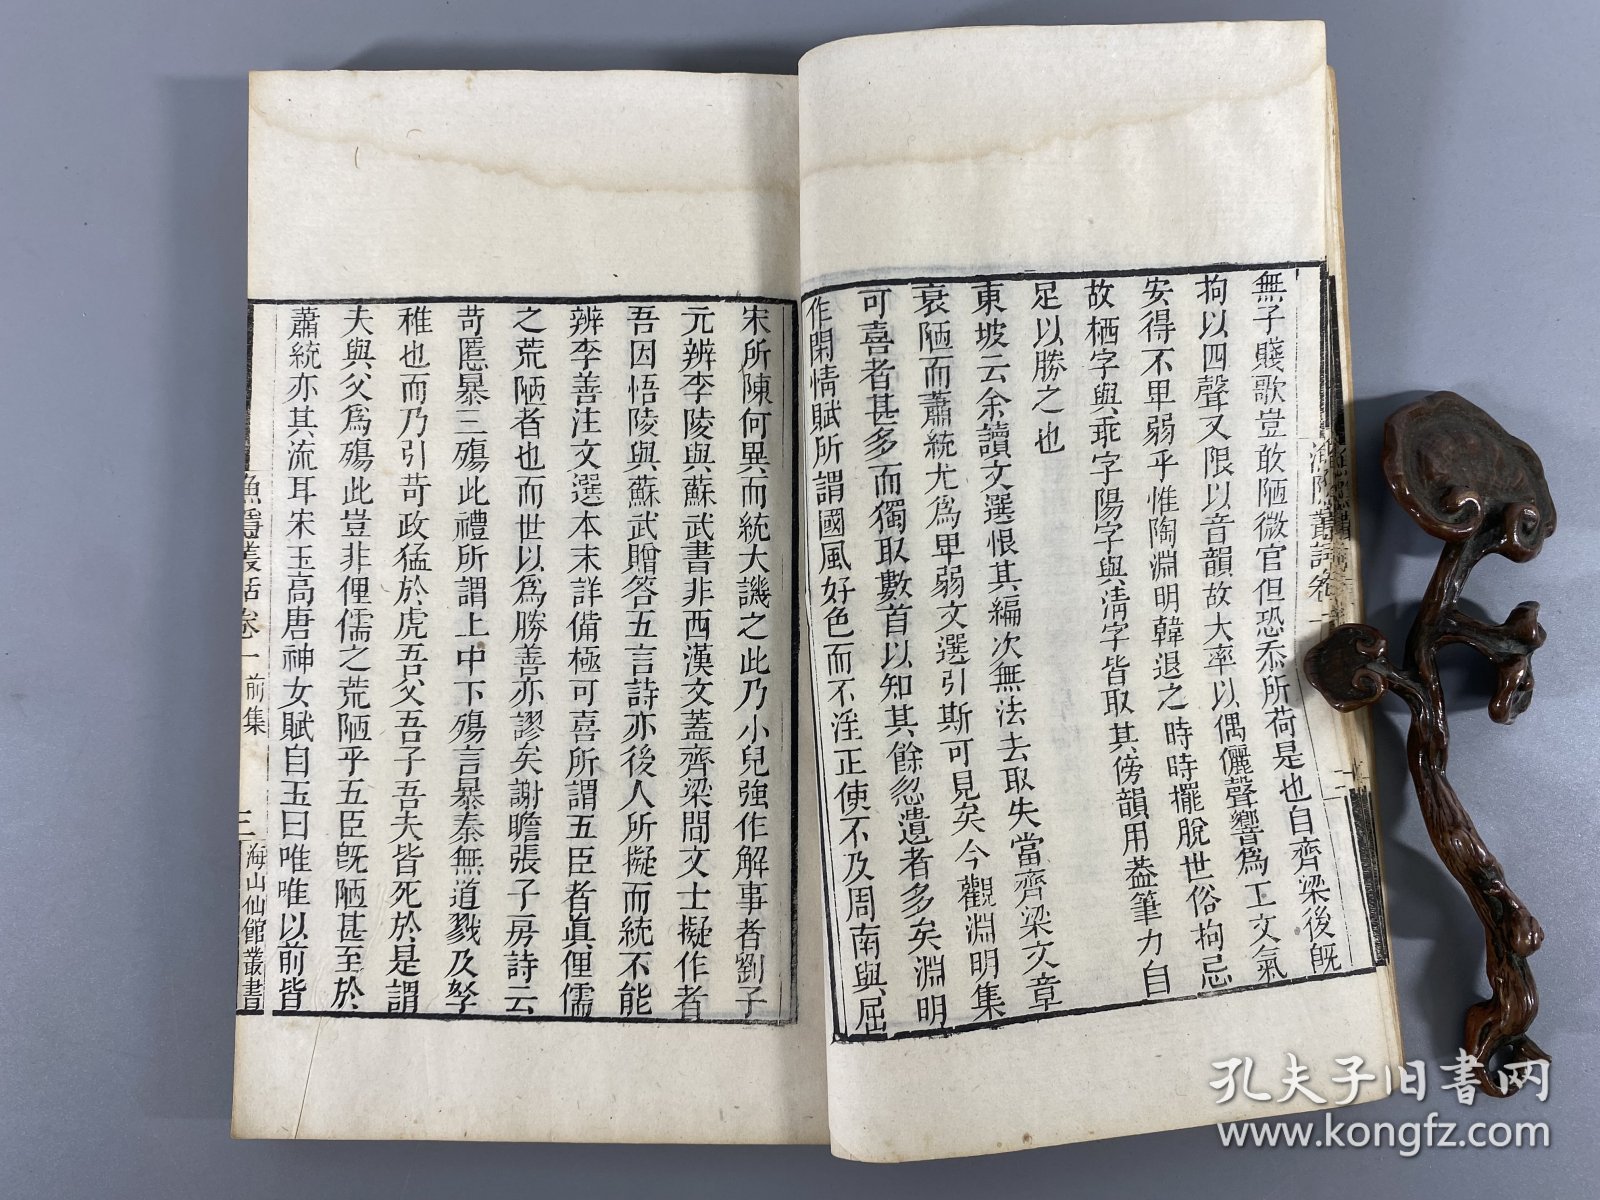 無子賤歌豈敢陋微官但恐忝所荷是也自齊梁後既
拘以四聲又限以音韻故大率以偶儷聲響爲工文氣
安得不卑弱乎惟陶淵明韓退之時時擺脫世俗拘忌
故栖字與乖字陽字與清字皆取其傍韻用葢筆力自
足以勝之也
東坡云余讀文選恨其編次無法去取失當齊梁文章
衰陋而蕭統尤爲卑弱文選引斯可見矣今觀淵明集
可喜者甚多而獨取數首以知其餘忽遺者多矣淵明
作閑情賦所謂國風好色而不淫正使不及周南與屈
宋所陳何異而統大譏之此乃小兒強作解事者劉子
元辨李陵與蘇武書非西漢文蓋齊梁間文士擬作者
吾因悟陵與蘇武贈答五言詩亦後人所擬而統不能
辨李善注文選本末詳備極可喜所謂五臣者真俚儒
之荒陋者也而世以爲勝善亦謬矣謝瞻張子房詩云
苛慝暴三殤此禮所謂上中下殤言暴秦無道戮及孥
稚也而乃引苛政猛於虎吾父吾子吾夫皆死於是謂
夫與父爲殤此豈非俚儒之荒陋乎五臣旣陋甚至於
蕭統亦其流耳宋玉高唐神女賦自玉曰唯唯以前皆
漁隱叢話卷一 前集 三 海山仙館叢書
孔夫子旧书网
www.kongfz.com